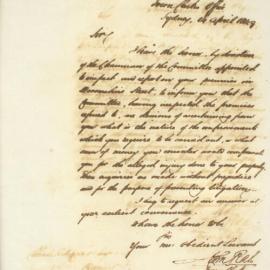 Town Clerk's Office
Sydney, April 1849
Sir,
I have the honor, by direction
of the Chairman of the Committee appointed
to inspect and report on your premises in
Street, to inform you that the
Committee, having inspected the premises
referred to, are desirous of ascertaining from
you what is the nature of the improvements
which you require to be carried out, or what
sum of money you consider would compensate
you for the alleged injury done to your property.
This enquiry is made without prejudice
and for the purpose of preventing litigation.
I beg to request an answer at
your earliest convenience.
I have the honor to be
Sir
Your mo. Obedient Servant